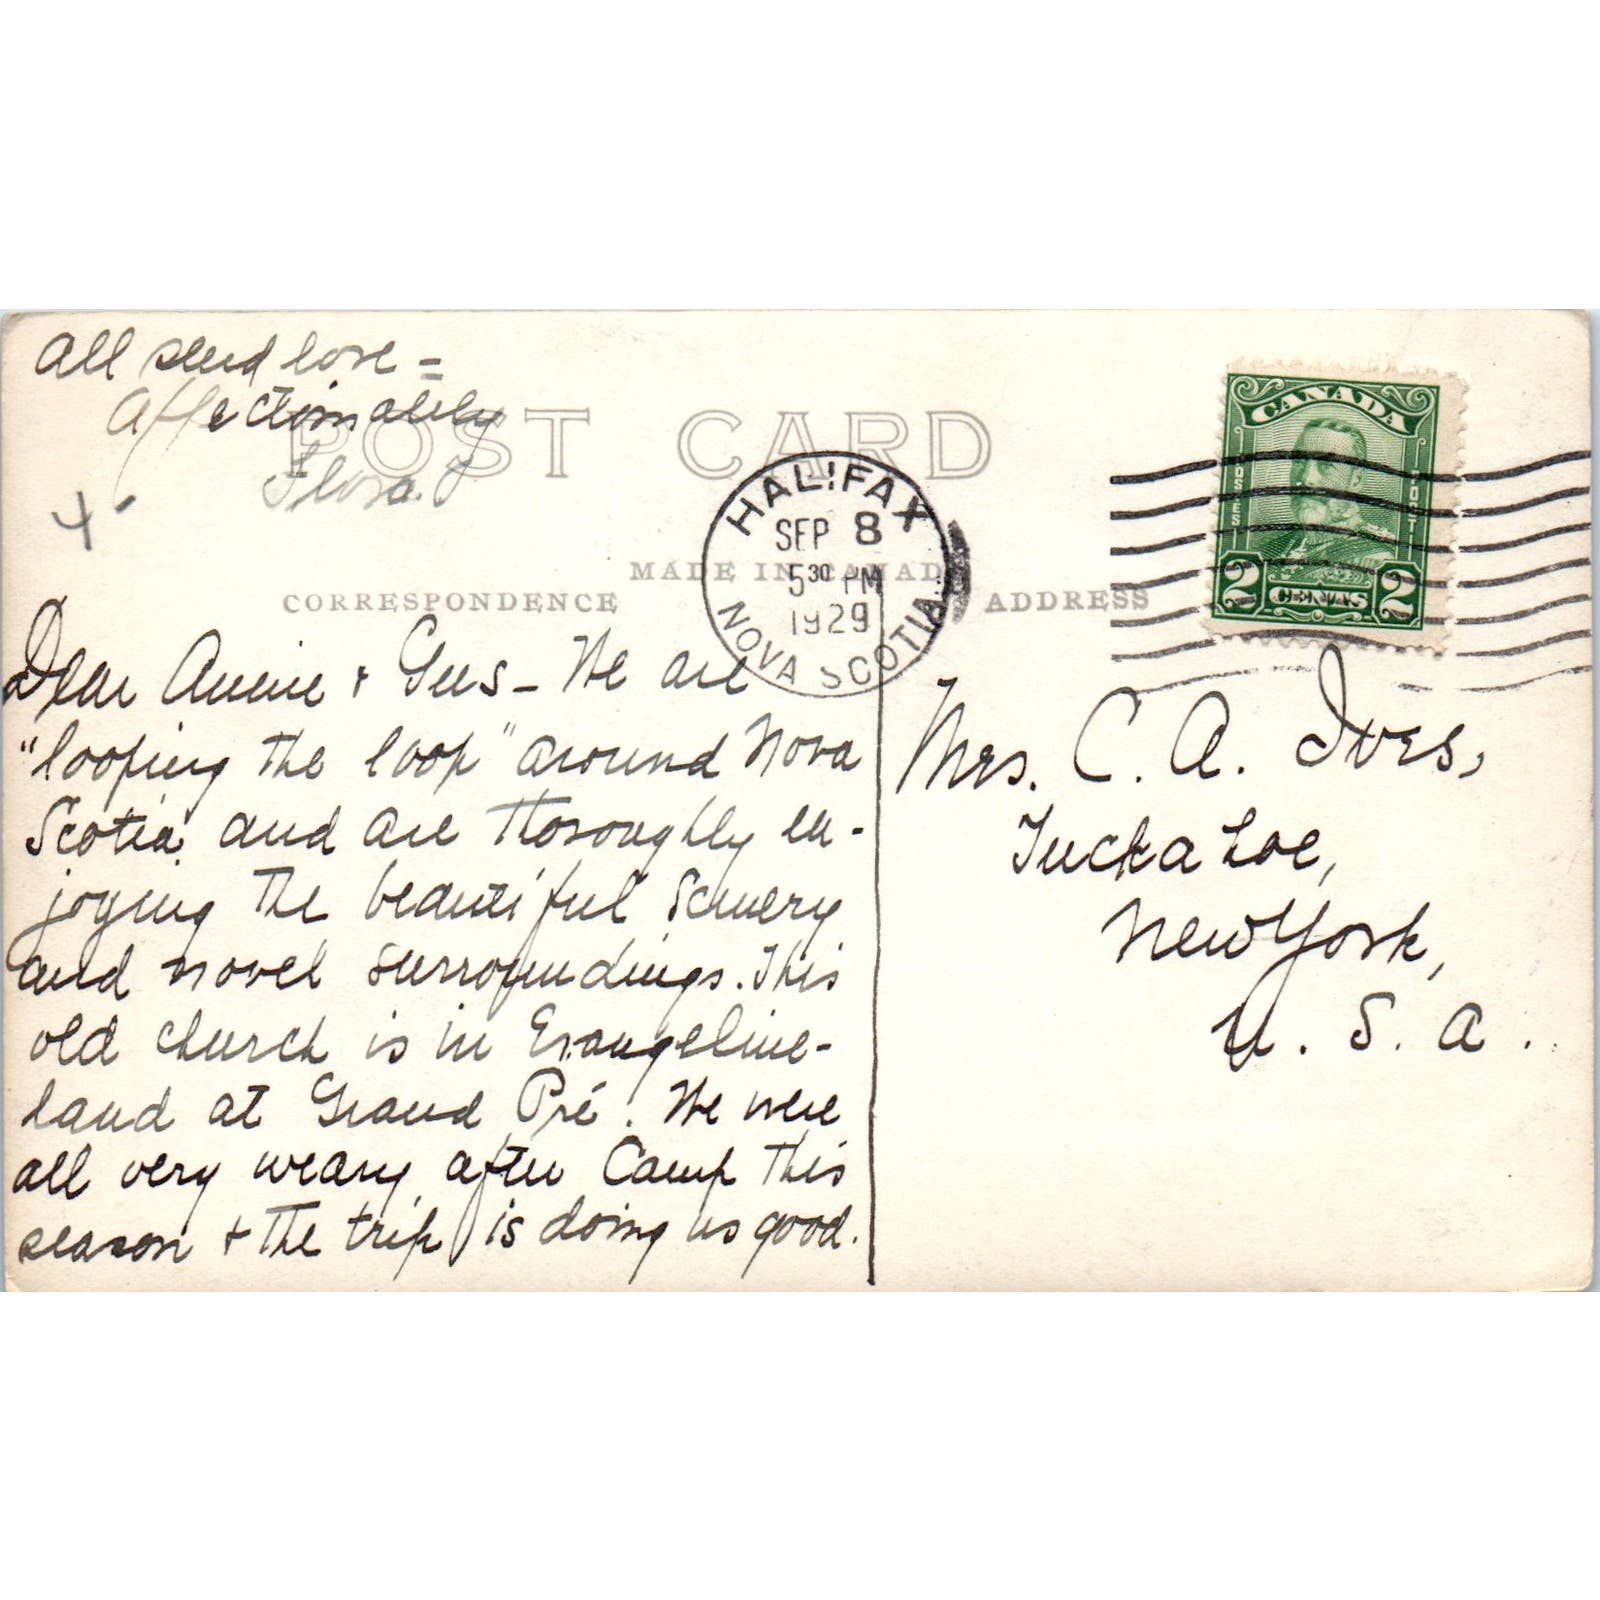 All send love =
Affectionately
Flora.
POST CARD
MADE IN CANADA
CORRESPONDENCE
ADDRESS
HALIFAX
SEP 8
5 30 PM
1929
NOVA SCOTIA
CANADA
POSTES
POST
2 CENTS 2
Dear Annie + Gus - We are
"looping the loop" around Nova
Scotia and are thoroughly en-
joying the beautiful scenery
and novel surroundings. This
old church is in Evangeline-
land at Grand Pré. We were
all very weary after Camp this
season + the trip is doing us good.
Mrs. C. A. Ives,
Tuckahoe,
New York,
U. S. A.